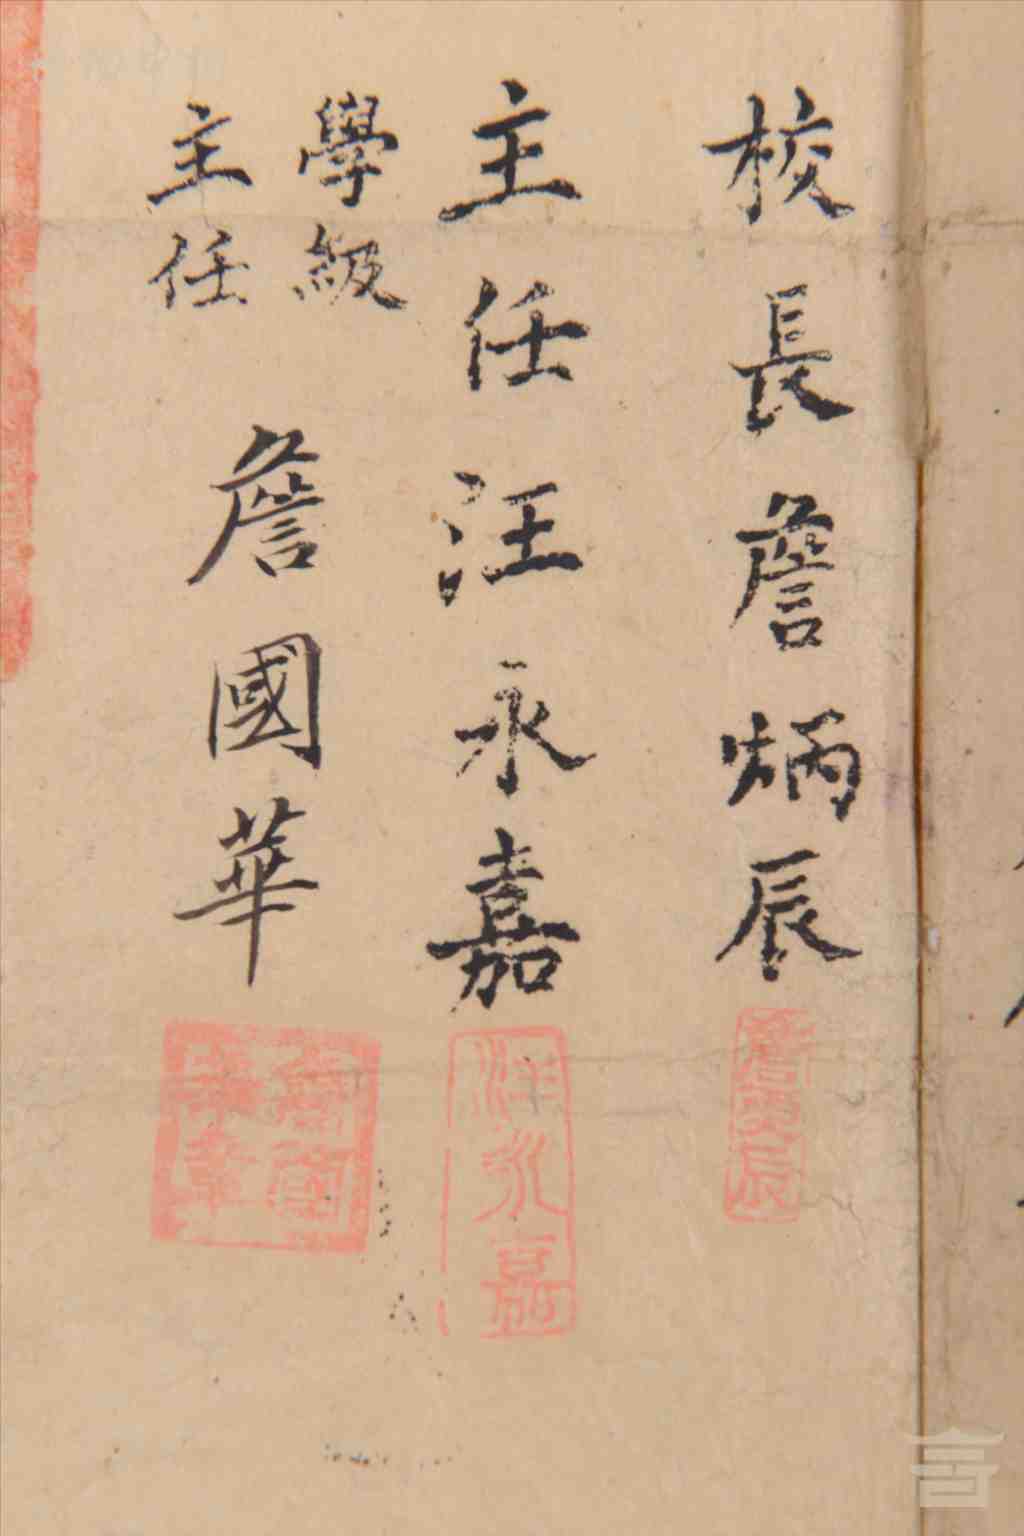 校長詹炳辰
主任汪永嘉
學級
主任
詹國華
詹炳辰
汪永嘉